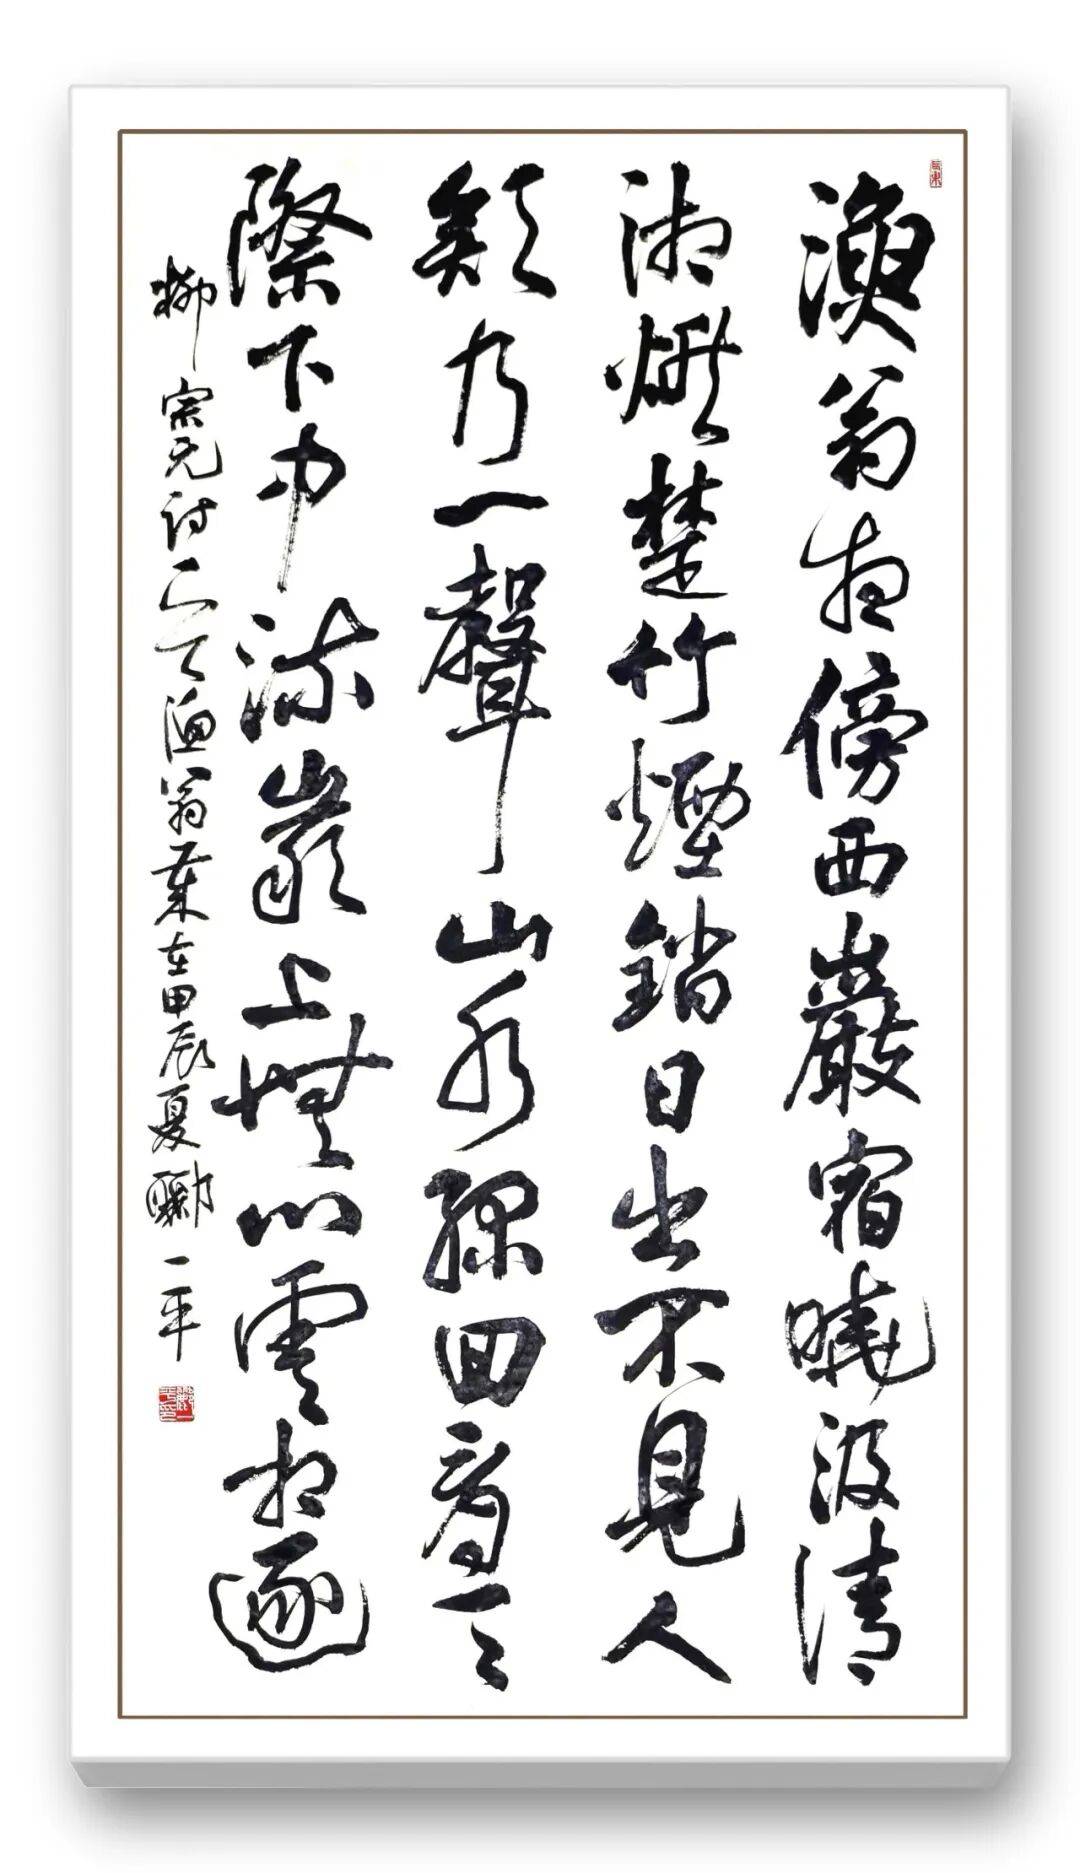 漁翁夜傍西巖宿曉汲清
湘燃楚竹煙銷日出不見人
欸乃一聲山水綠回看天
際下中流巖上無心雲相逐
柳宗元詩一首漁翁歲在甲辰夏酈一平